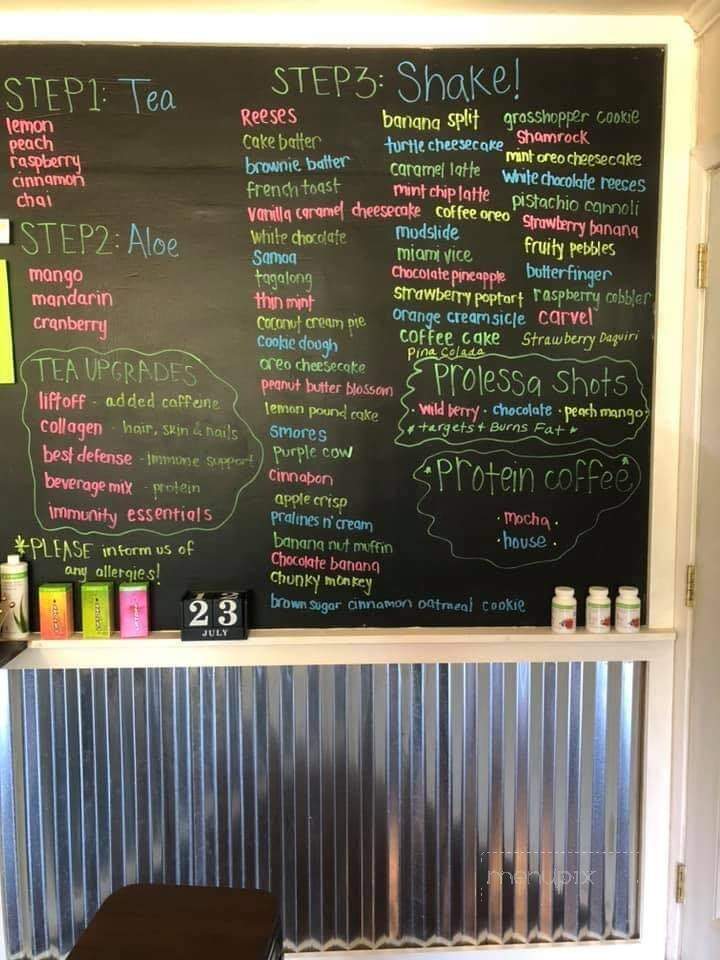 STEP1: Tea
lemon
peach
raspberry
cinnamon
chai
STEP2: Aloe
mango
mandarin
cranberry
TEA UPGRADES
liftoff - added caffeine
collagen - hair, skin & nails
best defense - immune support
beverage mix - protein
immunity essentials
*PLEASE inform us of
any allergies!
STEP3: Shake!
Reeses
cake batter
brownie batter
french toast
vanilla caramel cheesecake
white chocolate
Samoa
tagalong
thin mint
coconut cream pie
cookie dough
oreo cheesecake
peanut butter blossom
lemon pound cake
smores
purple cow
cinnabon
apple crisp
pralines n' cream
banana nut muffin
Chocolate banana
chunky monkey
brown sugar cinnamon oatmeal cookie
banana split
turtle cheesecake
caramel latte
mint chip latte
coffee oreo
mudslide
miami vice
Chocolate pineapple
strawberry poptart
orange creamsicle
coffee cake
Pina Colada
grasshopper cookie
Shamrock
mint oreo cheesecake
white chocolate reeces
pistachio cannoli
Strawberry banana
fruity pebbles
butterfinger
raspberry cobbler
carvel
Strawberry Daquiri
Prolessa Shots
· wild berry · chocolate · peach mango
* targets + Burns Fat *
*Protein coffee*
· mocha ·
· house ·
23
JULY
menupix